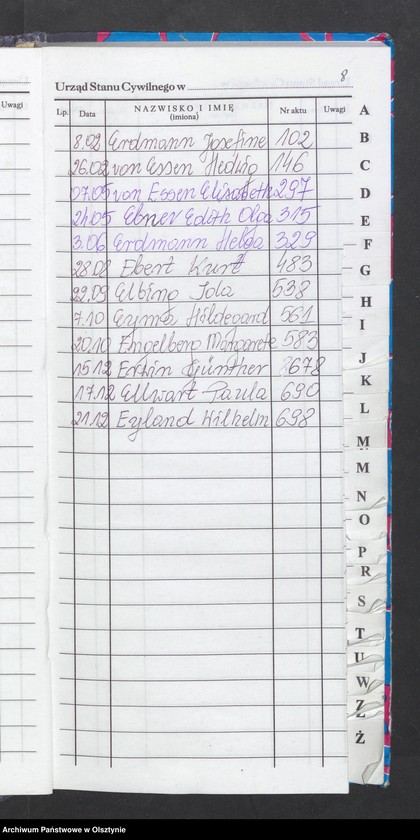 8
Uwagi
Urząd Stanu Cywilnego w
Lp. Data NAZWISKO I IMIĘ (imiona) Nr aktu Uwagi
8.02 Erdmann Josefine 102
26.02 von Essen Hedwig 146
07.05 von Essen Elisabeth 297
24.05 Ebner Edith Olga 315
3.06 Erdmann Helga 329
28.08 Ebert Kurt 483
22.09 Elbing Jola 538
7.10 Hildegard 561
20.10 Engelberg Margarete 583
15.12 Erwin Günther 678
17.12 Ellwart Paula 690
21.12 Eyland Wilhelm 698
A
B
C
D
E
F
G
H
I
J
K
L
M
M
N
O
P
R
S
T
U
W
Z
Ż
Archiwum Państwowe w Olsztynie